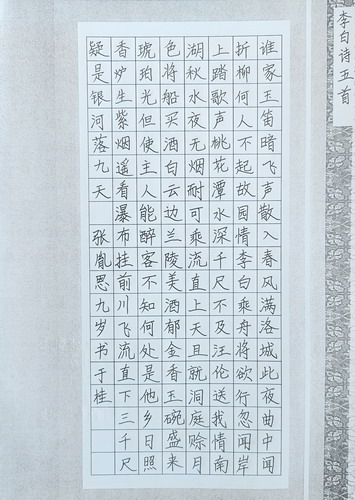 李白诗五首
谁家玉笛暗飞声散入春风满洛城此夜曲中闻
折柳何人不起故园情李白乘舟将欲行忽闻岸
上踏歌声桃花潭水深千尺不及汪伦送我情南
湖秋水夜无烟耐可乘流直上天且就洞庭赊月
色将船买酒白云边兰陵美酒郁金香玉碗盛来
琥珀光但使主人能醉客不知何处是他乡日照
香炉生紫烟遥看瀑布挂前川飞流直下三千尺
疑是银河落九天 张胤思九岁书于桂